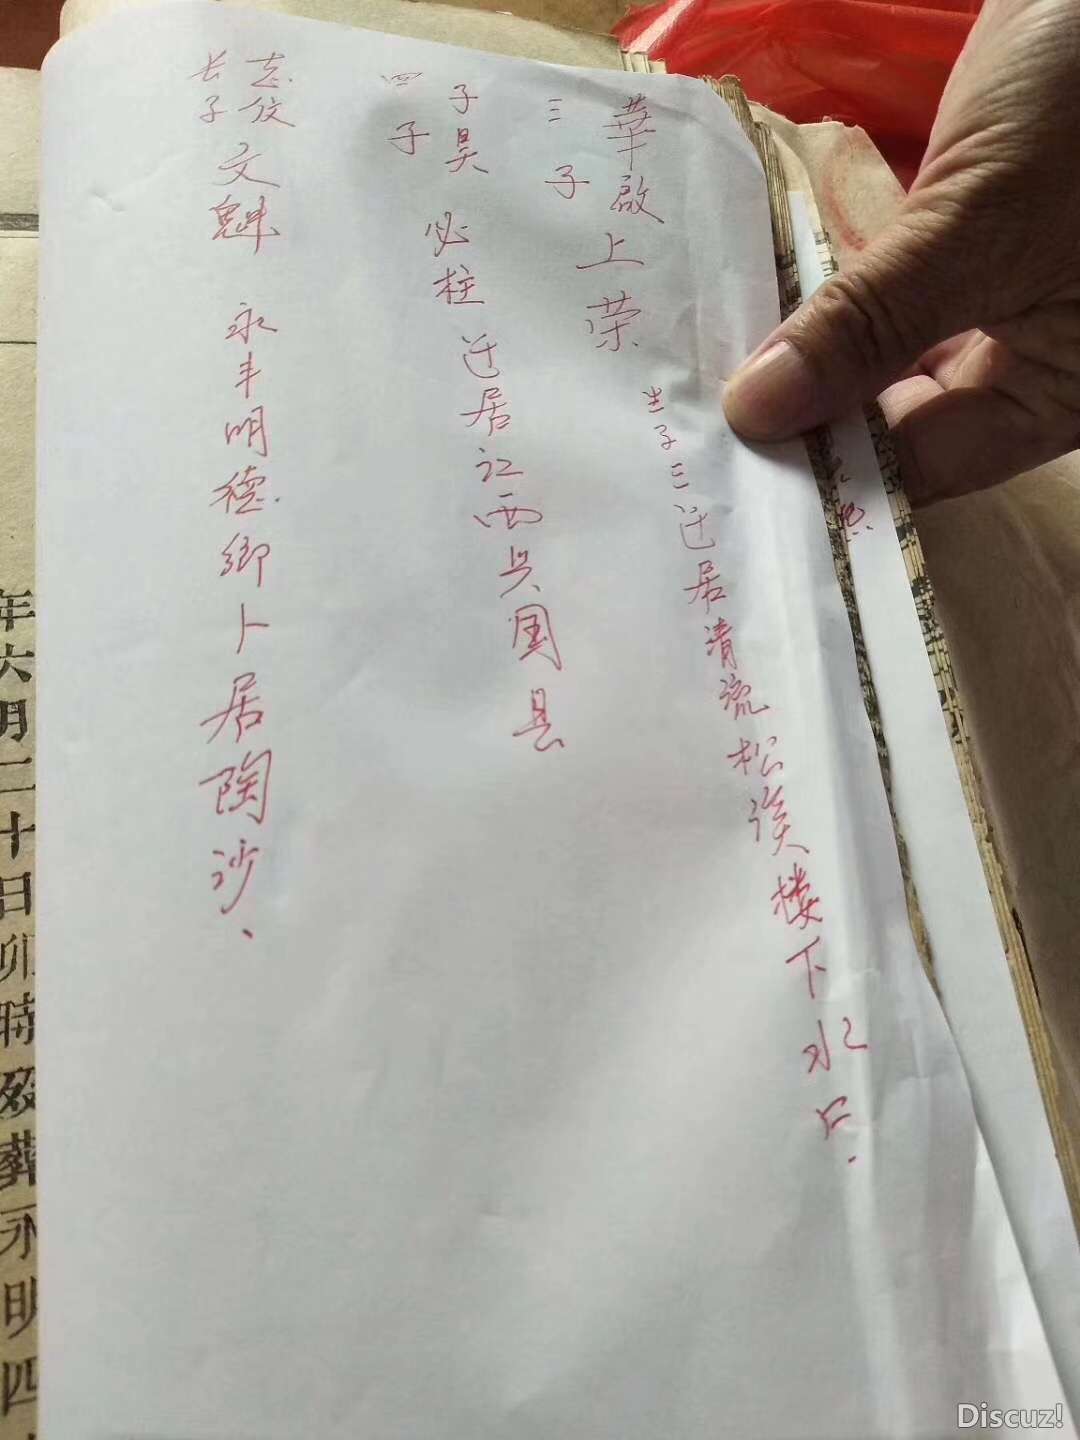 華啟三子 上荣 生子三迁居清流松溪楼下水口.
子昊四子 必柱 迁居江西兴国县
志伩长子 文魁 永丰明德鄉卜居陶沙、
年六月二十日卯時歿葬永明四
Discuz!